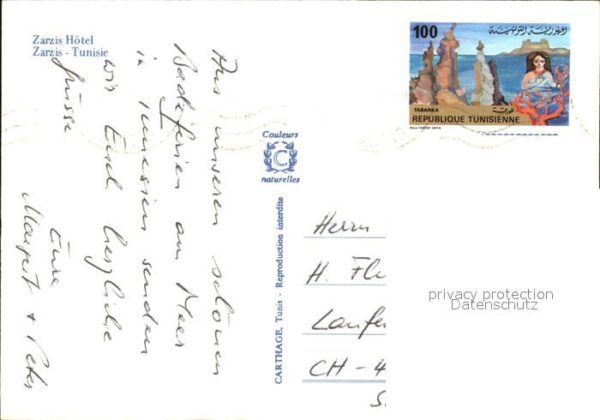 Zarzis Hôtel
Zarzis - Tunisie
Aus unseren schönen
Badeferien am Meer
in Tunesien senden
wir Euch herzliche
Grüsse
Eure
Margrit + Peter
Couleurs
C
naturelles
CARTHAGE, Tunis - Reproduction interdite
100
الجمهورية التونسية
TABARKA
طبرقة
REPUBLIQUE TUNISIENNE
Herrn
H. Fl
Laufe
CH - 4
S
privacy protection
Datenschutz